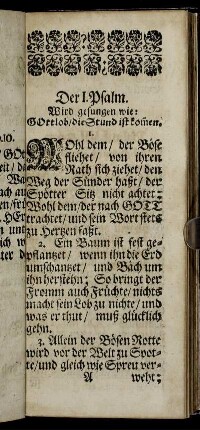 Der I. Psalm.
Wird gesungen wie:
GOttlob/ die Stund ist kom̃en.
1.
WOhl dem/ der Böse
fliehet/ von ihren
Rath sich ziehet/ den
Weg der Sünder haßt/ der
Spötter Sitz nicht achtet:
Wohl dem/ der nach GOTT
trachtet/ und sein Wort stets
zu Hertzen faßt.
2. Ein Baum ist fest ge-
pflantzet/ wenn ihn die Erd
umschantzet/ und Bäch um
ihn herstehn; So bringt der
Fromm auch Früchte/ nichts
macht sein Lob zu nichte/ und
was er thut/ muß glücklich
gehn.
3. Allein der Bösen Rotte
wird vor der Welt zu Spot-
te/ und gleich wie Spreu ver-
A weht;